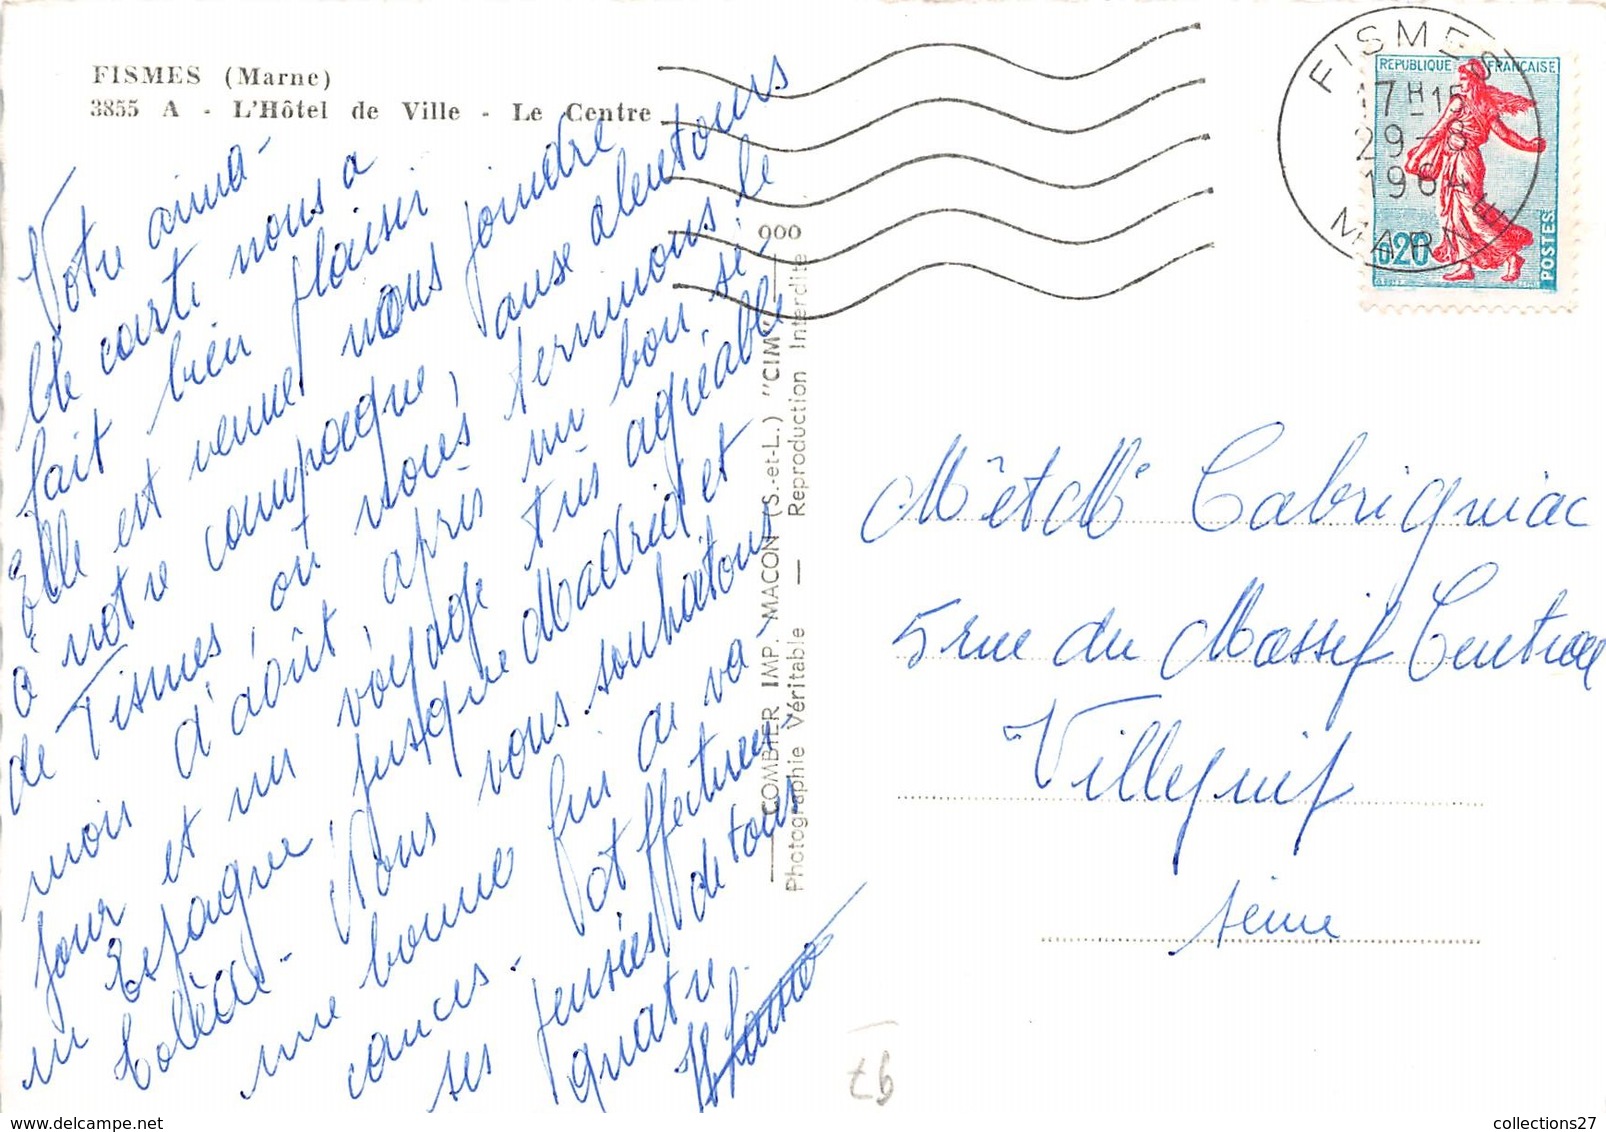 FISMES (Marne)
3855 A - L'Hôtel de Ville - Le Centre
Votre aima-
ble carte nous a
fait bien plaisir
Elle est venue nous joindre
à notre campagne, aux alentours
de Fismes, où nous terminons le
mois d'août, après un bon sé-
jour et un voyage très agréable
en Espagne, jusque Madrid et
Tolède. Nous vous souhaitons
une bonne fin de va-
cances. et affectueu-
ses pensées de tous
quatre
COMBIER IMP. MACON (S.-et-L.) "CIM"
Photographie Véritable — Reproduction Interdite
000
FISMES
17H15
29-8
196
MARNE
REPUBLIQUE FRANÇAISE
0,20
POSTES
Mr et Me Cabrignac
5 rue du Massif Central
Villejuif
Seine
collections27